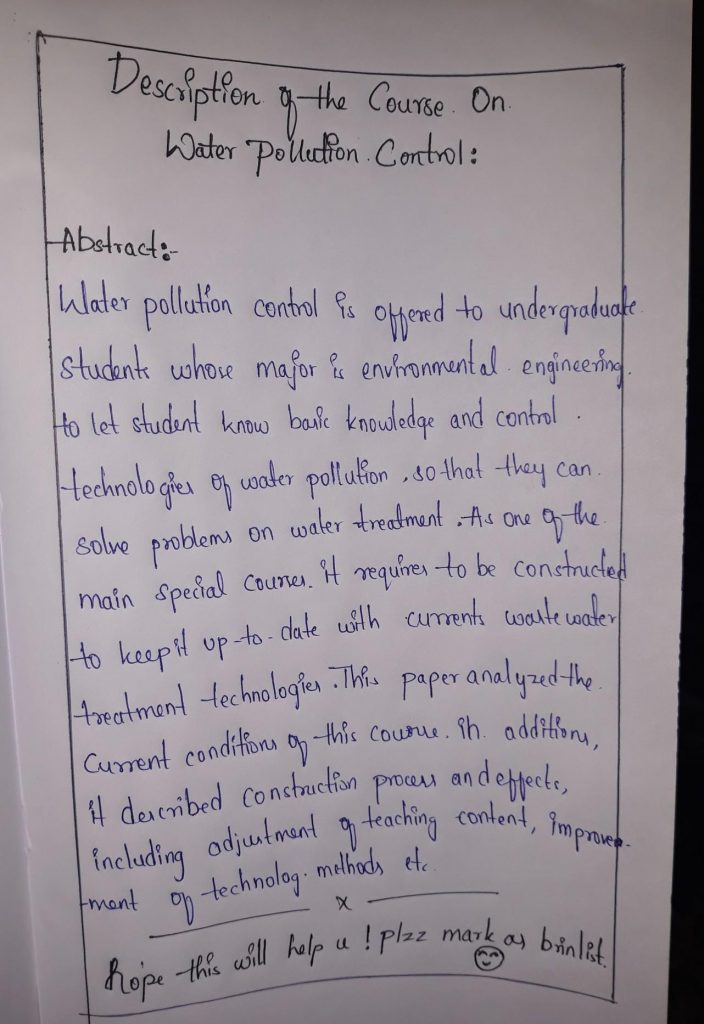 Description of the Course. On.
Water Pollution. Control:
Abstract:-
Water pollution control is offered to undergraduate
students whose major is environmental. engineering.
to let student know basic knowledge and control.
technologies of water pollution, so that they can.
solve problems on water treatment. As one of the.
main special courses. it requires to be constructed
to keep it up-to-date with currents waste water
treatment technologies. This paper analyzed the.
Current conditions of this course. ih. additions,
it described construction process and effects,
including adjustment of teaching content, improve-
-ment of technolog. methods etc.
x
hope this will help u ! plzz mark as brinlist.